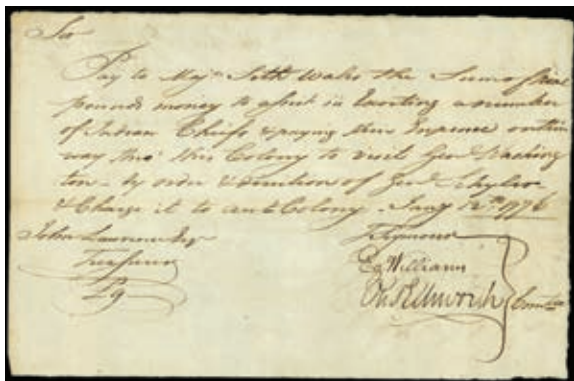 Sir
Pay to Majr Seth Wales the Sum of five
pounds money to assist in Escorting a number
of Indian Chiefs & paying their Expence on their
way thro' this Colony to visit Genl Washing
ton - by order & direction of Genl Schyler
& Charge it to Colony. Jany 12th 1776
John Lawrence Esqr
Treasurer
T Seymour
Ez Williams
Olr Ellsworth
Comtee